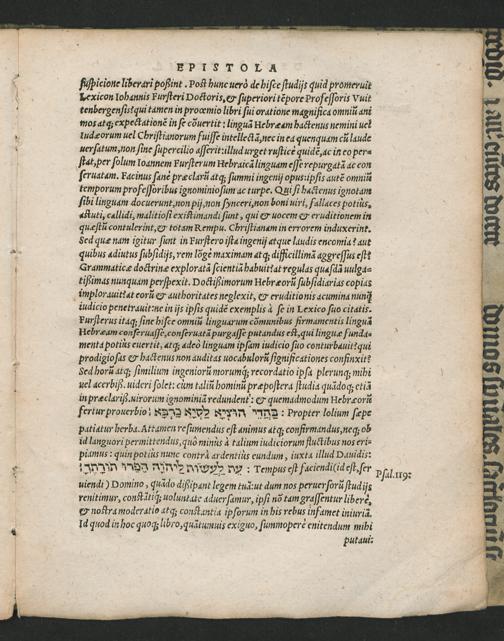 EPISTOLA
suspicione liberari poßint. Post hunc verò de hisce studijs quid promeruit
Lexicon Iohannis Fursteri Doctoris, & superiori tēpore Professoris Vuit
tenbergensis? qui tamen in proœmio libri sui oratione magnifica omniū ani
mos atq; expectationē in se cōvertit: linguā Hebræam hactenus nemini vel
Iudæorum vel Christianorum fuisse intellectā, nec in ea quenquam cū laude
versatum, non sine supercilio asserit: illud urget rusticè quidē, ac in eo per-
stat, per solum Ioannem Fursterum Hebraicā linguam esse repurgatā ac con
servatam. Facinus sanè præclarū atq; summi ingenij opus: ipsis autē omniū
temporum professoribus ignominiosum ac turpe. Qui si hactenus ignotam
sibi linguam docuerunt, non pij, non synceri, non boni viri, fallaces potius,
astuti, callidi, malitiosi existimandi sunt, qui & vocem & eruditionem in
quæstū contulerint, & totam Rempu. Christianam in errorem induxerint.
Sed quæ nam igitur sunt in Furstero ista ingenij atque laudis encomia? aut
quibus adiutus subsidijs, rem lōgè maximam atq; difficillimā aggressus est?
Grammaticæ doctrinæ exploratā scientiā habuit? at regulas quasdā vulga-
tißimas nunquam perspexit. Doctißimorum Hebræorū subsidiarias copias
implorauit? at eorū & authoritates neglexit, & eruditionis acumina nunq̃
iudicio penetravit: ne in ijs ipsis quidē exemplis à se in Lexico suo citatis.
Fursterus itaq; sine hisce omniū linguarum cōmunibus firmamentis linguā
Hebræam conservasse, conservatā purgasse putandus est, qui linguæ funda-
menta potiùs evertit, atq; adeò linguam ipsam iudicio suo conturbauit? qui
prodigiosas & hactenus non auditas vocabulorū significationes confinxit?
Sed horū atq; similium ingeniorū morumq; recordatio ipsa plerunq; mihi
vel acerbiß. videri solet: cùm taliū hominū præpostera studia quādoq; etiā
in præclariß. virorum ignominiā redundent: & quemadmodum Hebræorū
fertur proverbio: בַּהֲדֵי הוּצָא לָקְיָא כְּרָבָא: Propter lolium sæpe
patiatur herba. Attamen resumendus est animus atq; confirmandus, neq; ob
id languori permittendus, quò minùs à talium iudiciorum fluctibus nos eri-
piamus: quin potius nunc contrà ardentius eundum, iuxta illud Dauidis:
עֵת לַעֲשׂוֹת לַיהוָה הֵפֵרוּ תּוֹרָתֶךָ: Tempus est faciendi (id est, ser
viendi) Domino, quādo dißipant legem tuā: ut dum nos perversorū studijs
renitimur, constātiq; voluntate adversamur, ipsi nō tam grassentur liberè,
& nostra moderatio atq; constantia ipsorum in his rebus infamet iniuriā.
Id quod in hoc quoq; libro, quātumuis exiguo, summoperè enitendum mihi
putaui:
Psal. 119: